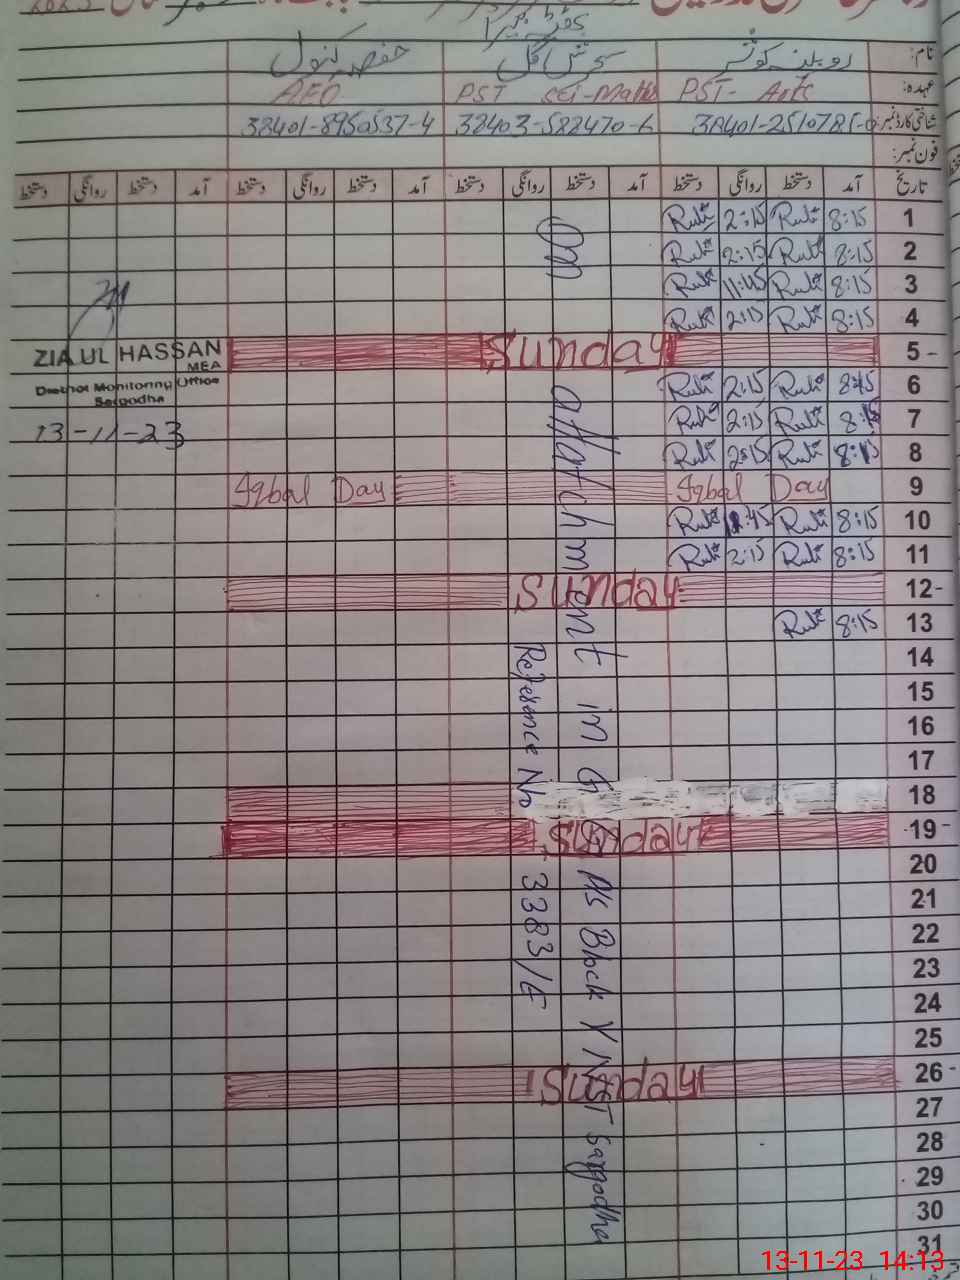 نام: روبینہ کوثر سحرش گل حفصہ کنول
عہدہ: PST- Arts PST Sci-Maths AEO
شناختی کارڈ نمبر: 38403-582470-6 38401-8950537-4
فون نمبر:
تاریخ آمد دستخط روانگی دستخط آمد دستخط روانگی دستخط آمد دستخط روانگی دستخط آمد دستخط روانگی دستخط
1 8:15 Rubi 2:15 Rubi
2 8:15 Rubi 2:15 Rubi
3 8:15 Rubi 11:45 Rubi
4 8:15 Rubi 2:15 Rubi
5 - Sunday
6 8:15 Rubi 2:15 Rubi
7 8:15 Rubi 2:15 Rubi
8 8:15 Rubi 2:15 Rubi
9 Iqbal Day Iqbal Day
10 8:15 Rubi 11:45 Rubi
11 8:15 Rubi 2:15 Rubi
12 - Sunday
13 8:15 Rubi
14
15
16
17
18
19 - Sunday
20
21
22
23
24
25
26 - Sunday
27
28
29
30
31
On attatchment in G PS Block Y NST Sargodha
Reference No 3383/E
ZIA UL HASSAN
MEA
District Monitoring Office
Sargodha
13-11-23
13-11-23 14:13